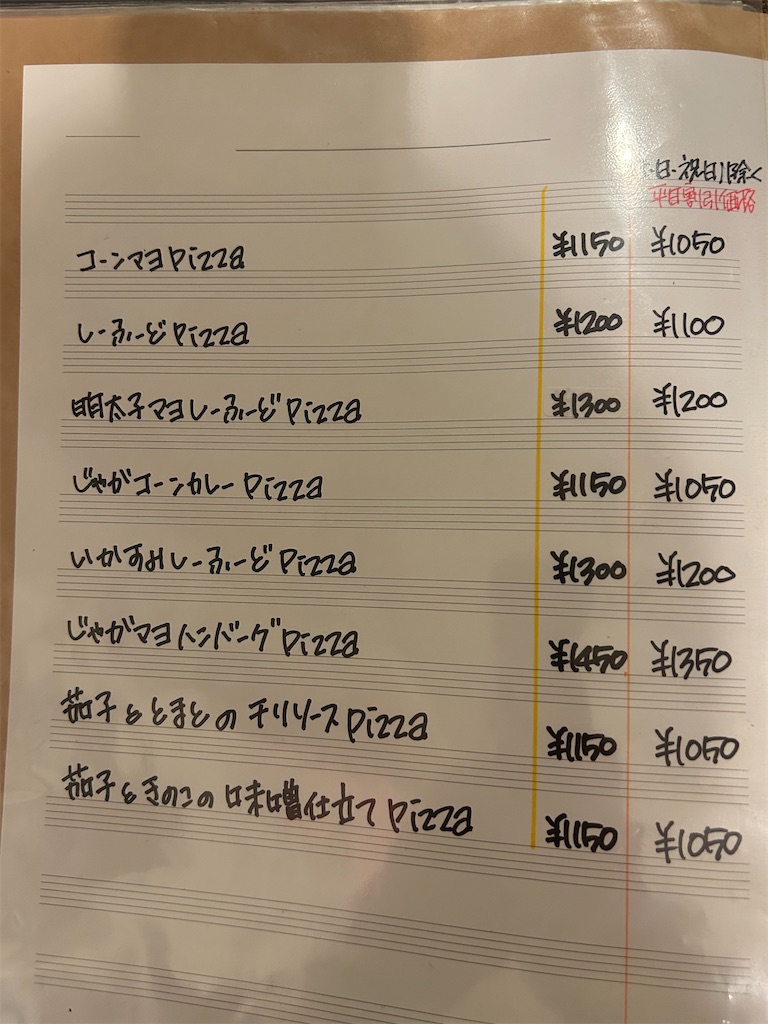 日・祝日除く
平日割引価格
コーンマヨpizza ¥1150 ¥1050
しーふーどpizza ¥1200 ¥1100
明太子マヨしーふーどpizza ¥1300 ¥1200
じゃがコーンカレーpizza ¥1150 ¥1050
いかすみしーふーどpizza ¥1300 ¥1200
じゃがマヨハンバーグpizza ¥1450 ¥1350
茄子ととまとのチリソースpizza ¥1150 ¥1050
茄子ときのこの味噌仕立てpizza ¥1150 ¥1050